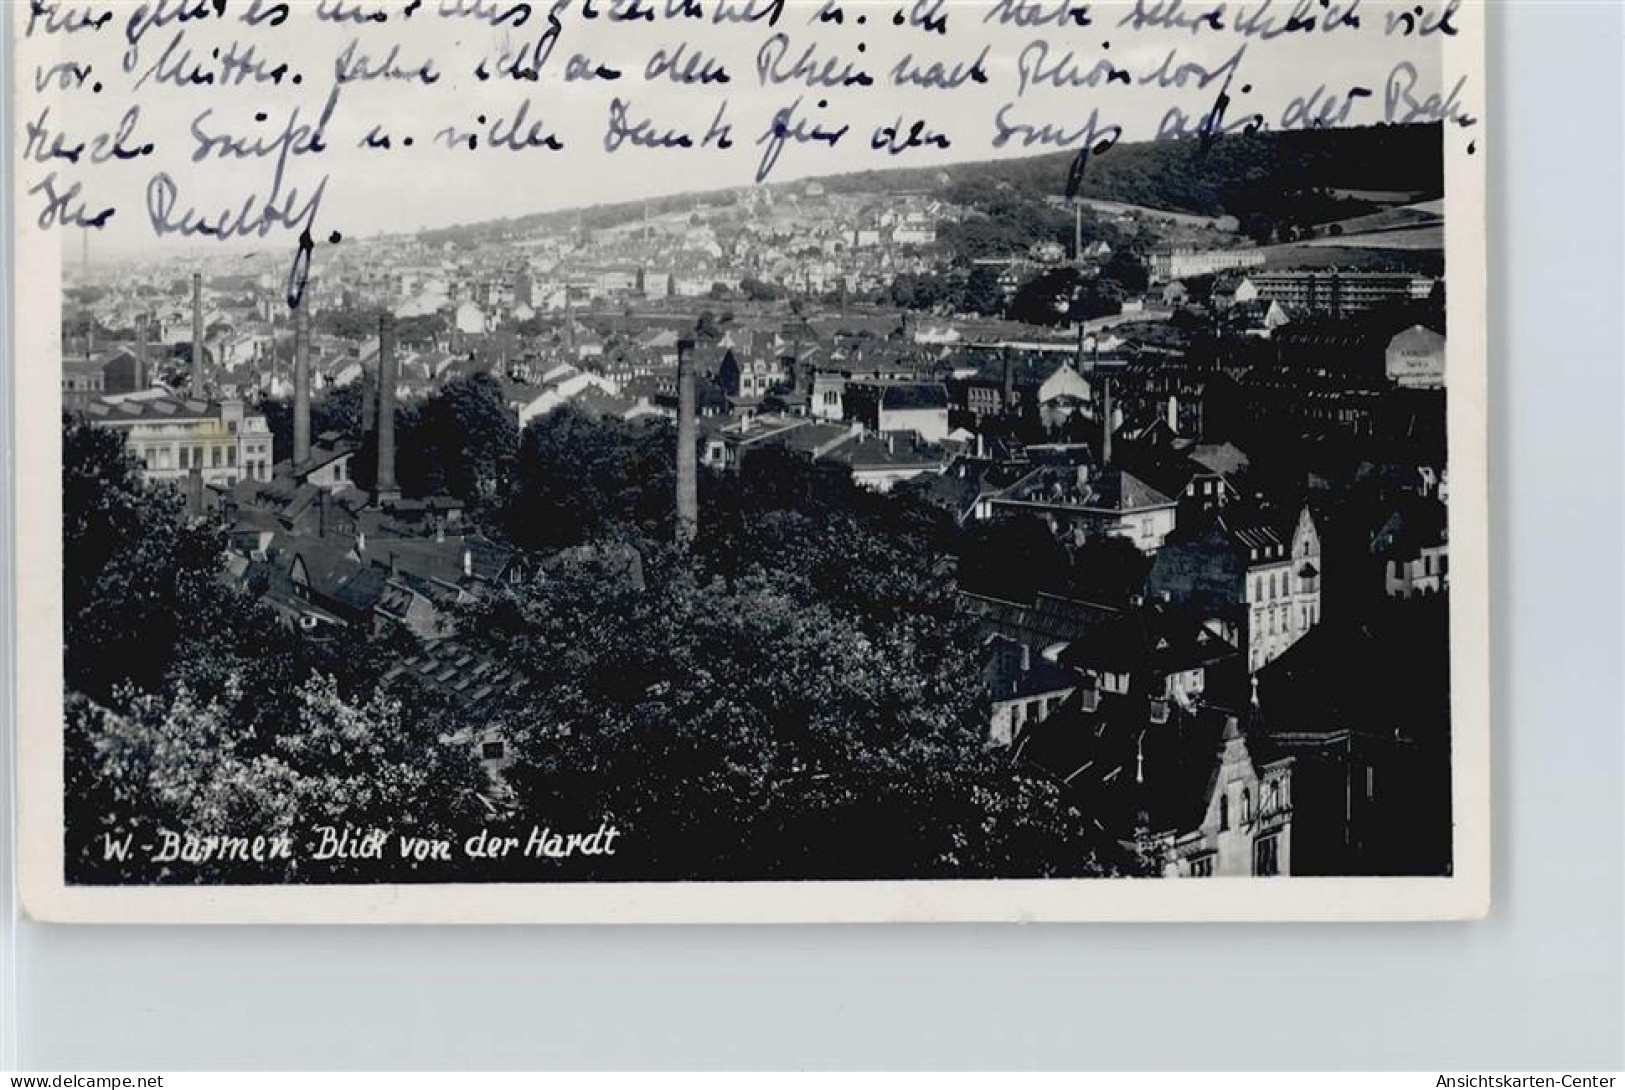 Hier geht es mir ausgezeichnet u. ich habe schrecklich viel
vor. Mittw. fahre ich an den Rhein nach Rhöndorf.
Herzl. Grüße u. vielen Dank für den Gruß aus der Bahn.
Ihr Rudolf.
W.-Barmen, Blick von der Hardt
delcampe.net
Ansichtskarten-Center